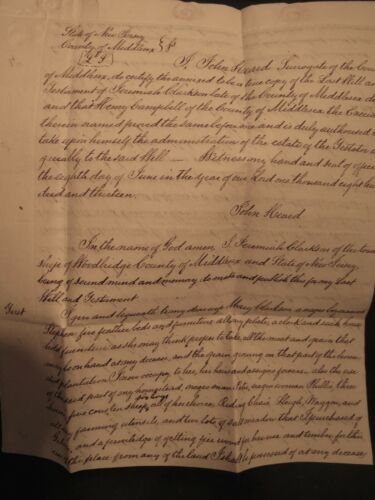 State of New Jersey
County of Middlesex } SS
(LS)
I John Heard Surrogate of the County
of Middlesex, do certify the annexed to be a true copy of the Last Will and
Testament of Jeremiah Clarkson late of the County of Middlesex de
and that Henry Campbell of the County of Middlesex the Execu
therein named proved the same before me and is duly authorized to
take upon himself the administration of the estate of the Testator a
greeably to the said Will — Witness my hand and seal of office
the eighth day of June in the year of our Lord one thousand eight hun
dred and thirteen.
John Heard
In the name of God amen, I Jeremiah Clarkson of the town
ship of Woodbridge County of Middlesex and State of New Jersey
being of sound mind and memory, do make and publish this my last
Will and Testament
First I give and bequeath to my dear wife Mary Clarkson a negro boy named
Stephen five feather beds and furniture all my plate, a clock and such house
hold furniture as she may think proper to take, all the meat and grain that
may be on hand at my decease, and the grain growing on that part of the home
sted plantation I now occupy, to her, her heirs and assigns forever. also the use
of the said part of my homestead, negro man negro woman Phillis, three
five cows, ten sheep, all of her choice, Riding Chair, Sleigh, Waggon, and
all my farming utensils, and ten lots of salt meadow that I purchased of
and a priviledge of getting fire wood for her use and timber for
the place from any of the land I shall be possessed of at my decease